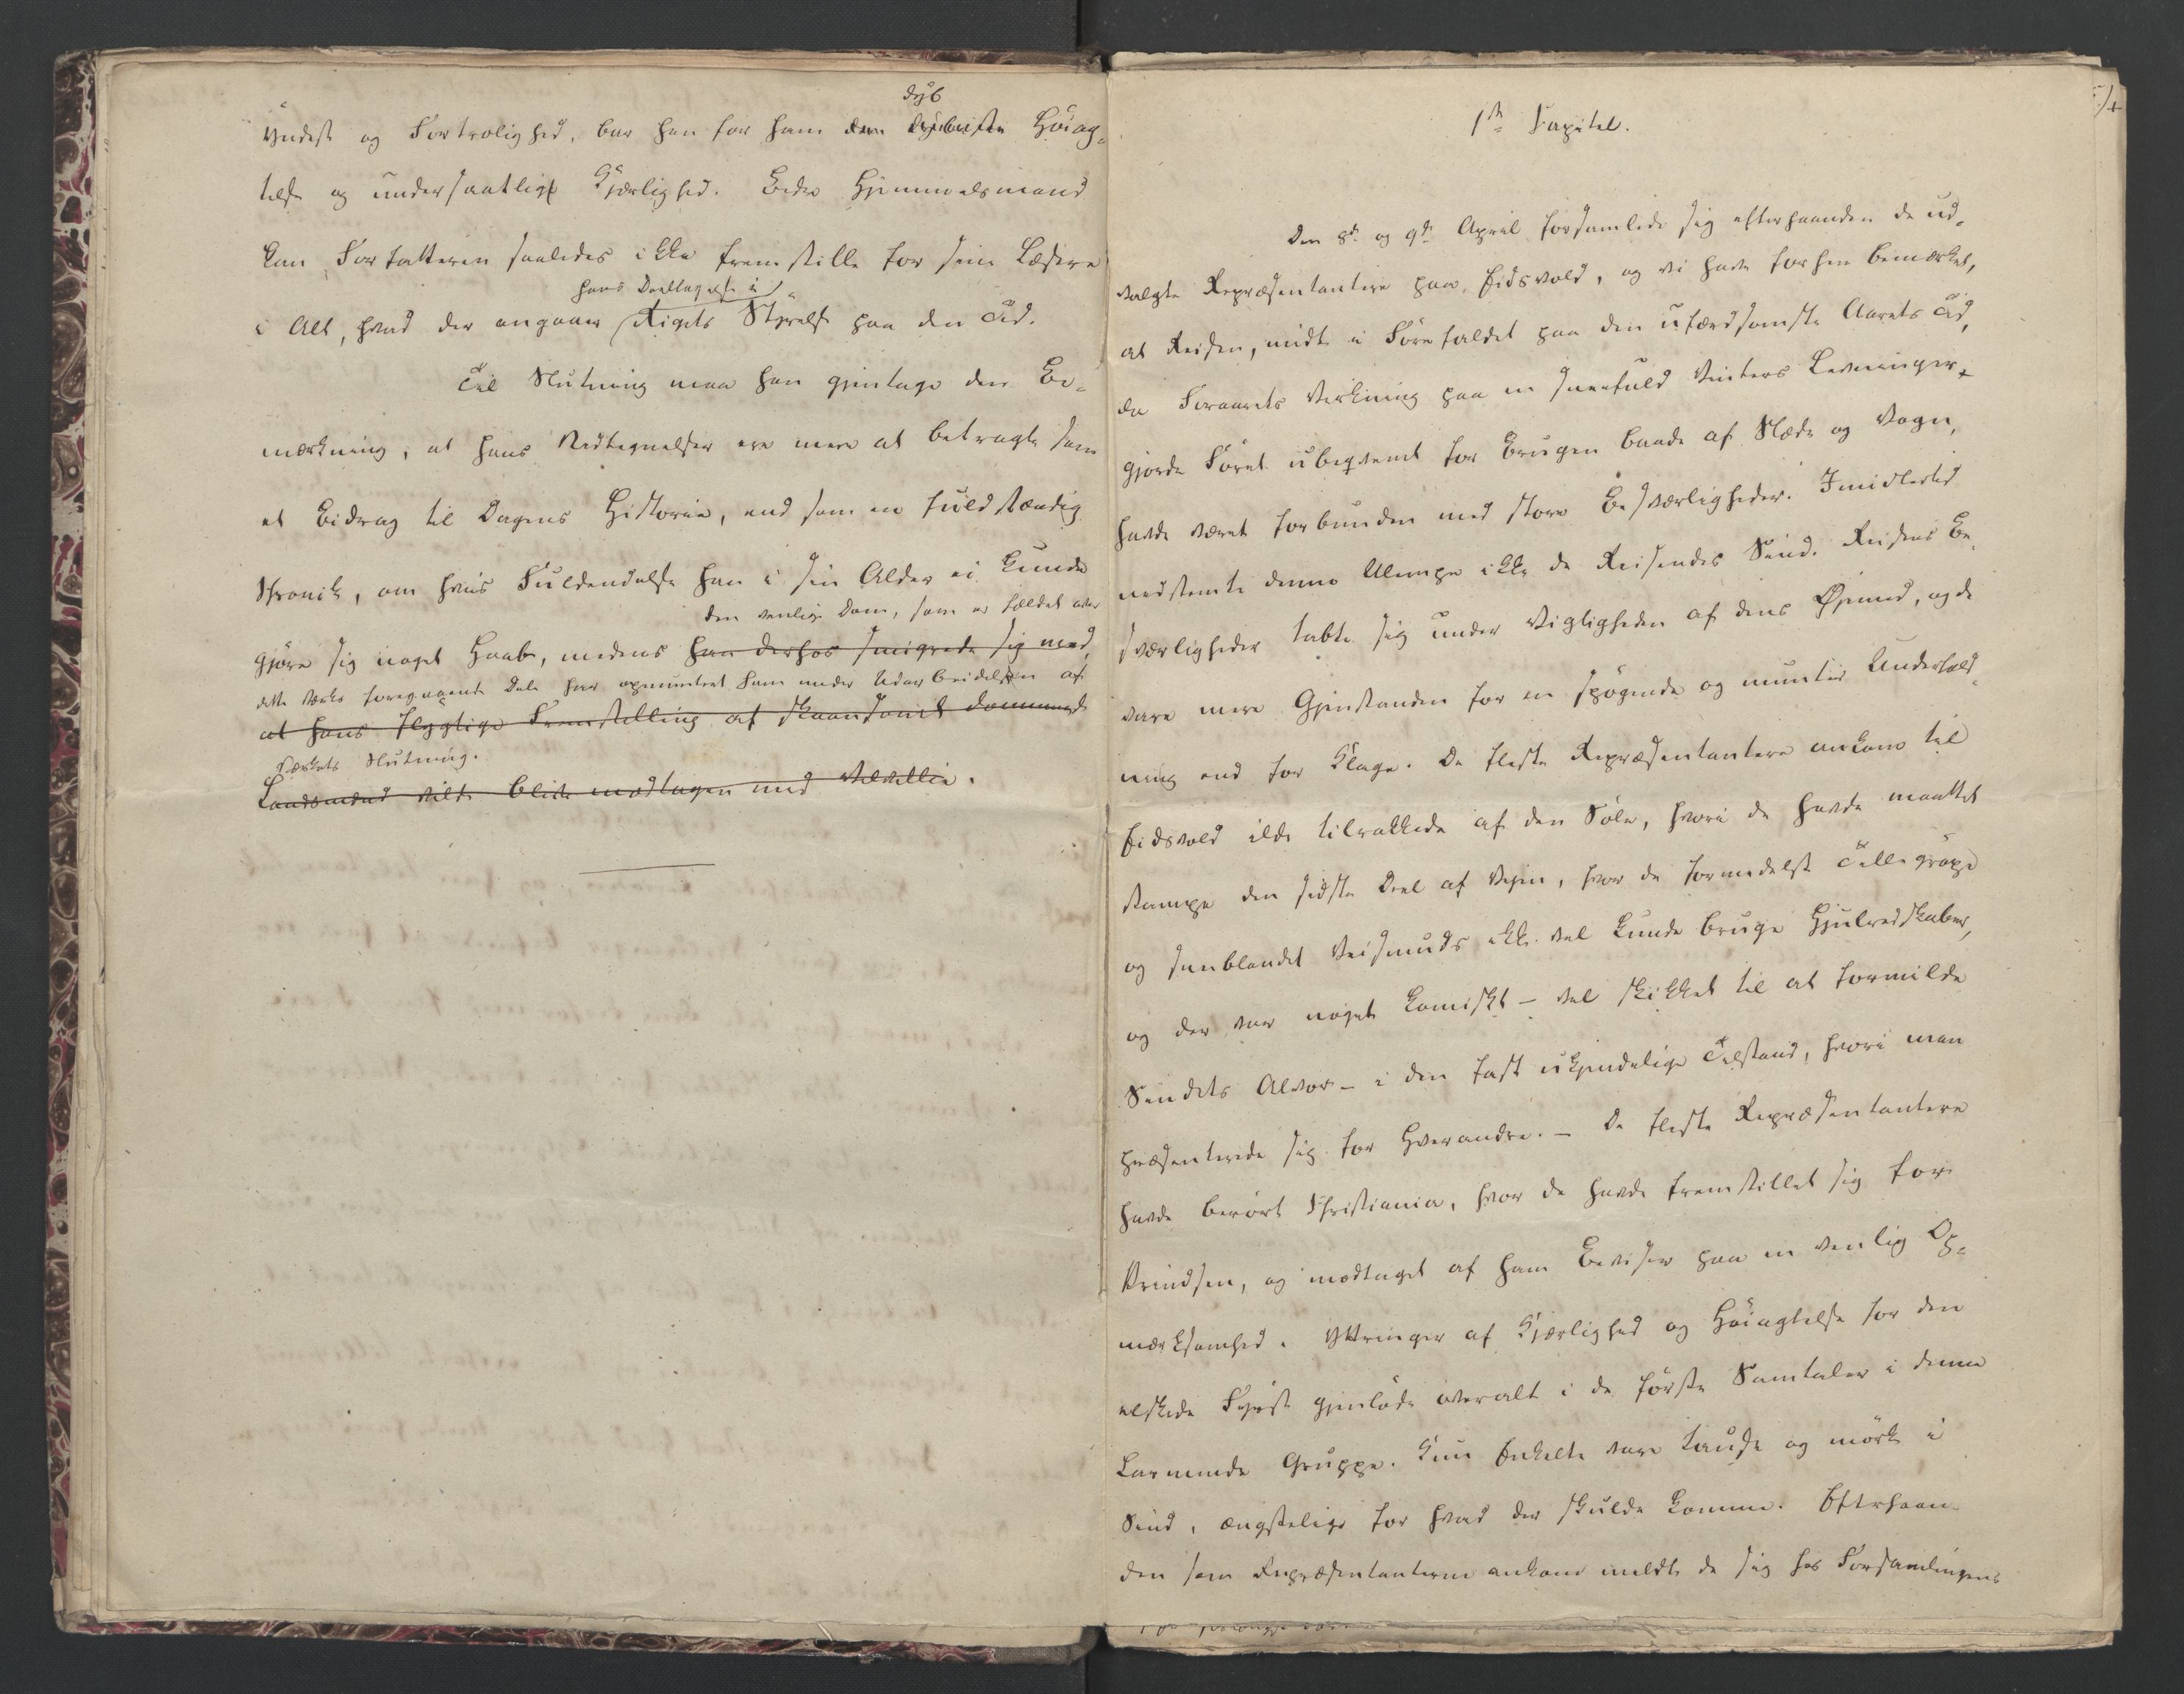 dyb
Yndest og Fortrolighed, bar han for ham den dybeste Höiag-
telse og undersaatlige Kjærlighed. Bedre Hjemmelsmand
kan Forfatteren saaledes ikke fremstille for sine Læsere
hans Deeltagelse i
i Alt, hvad der angaaer Rigets Styrelse paa den Tid.
Til Slutning maa han gjentage den Be-
mærkning, at hans Optegnelser ere mere at betragte som
et Bidrag til Dagens Historie, end som en fuldstændig
Chronik, om hvis Fuldendelse han i sin Alder ei kunde
den venlige Dom, som er fældet over
gjöre sig noget Haab, medens han derhos smigrede sig med,
dette Værks foregaaende Dele har opmuntret ham under Udarbeidelsen af
at hans flygtige Fremstilling af skaansomt dömmende
Værkets Slutning.
Landsmænd vilde blive modtagen med Velvillie.
1ste Capitel.
Den 8de og 9de April forsamlede sig efterhaanden de ud-
valgte Repræsentantere paa Eidsvold, og vi have forhen bemærket,
at Reisen, midt i Förefaldet paa den ufærdsomste Aarets Tid,
da Foraarets Virkning paa en sneefuld Vinters Levninger
gjorde Föret ubeqvemt for Brugen baade af Slæde og Vogn,
havde været forbunden med store Besværligheder. Imidlertid
nedstemte denne Ulempe ikke de Reisendes Sind. Reisens Be-
sværligheder tabte sig under Vigtigheden af dens Øjemed, og de
vare mere Gjenstanden for en spögende og munter Underhold-
ning end for Klage. De fleste Repræsentantere ankom til
Eidsvold ilde tilrakkede af den Söle, hvori de havde maattet
stampe den sidste Deel af Vejen, hvor de formedelst Tellegröpe
og sneblandet Veismuds ikke vel kunde bruge Hjulredskaber,
og der var noget komiskt – vel skikket til at formilde
Sindets Alvor – i den fast ukjendelige Tilstand, hvori man
præsenterede sig for hverandre. – De fleste Repræsentantere
havde berört Christiania, hvor de havde fremstillet sig for
Prindsen, og modtaget af ham Beviser paa en venlig Op-
mærksomhed. Yttringer af Kjærlighed og Höiagtelse for den
elskede Fyrste gjenlöde overalt i de förste Samtaler i denne
larmende Gruppe. Kun Enkelte vare tause og mörke i
Sind, ængstelige for hvad der skulde komme. Efterhaan-
den som Repræsentanterne ankom meldte de sig hos Forsamlingens